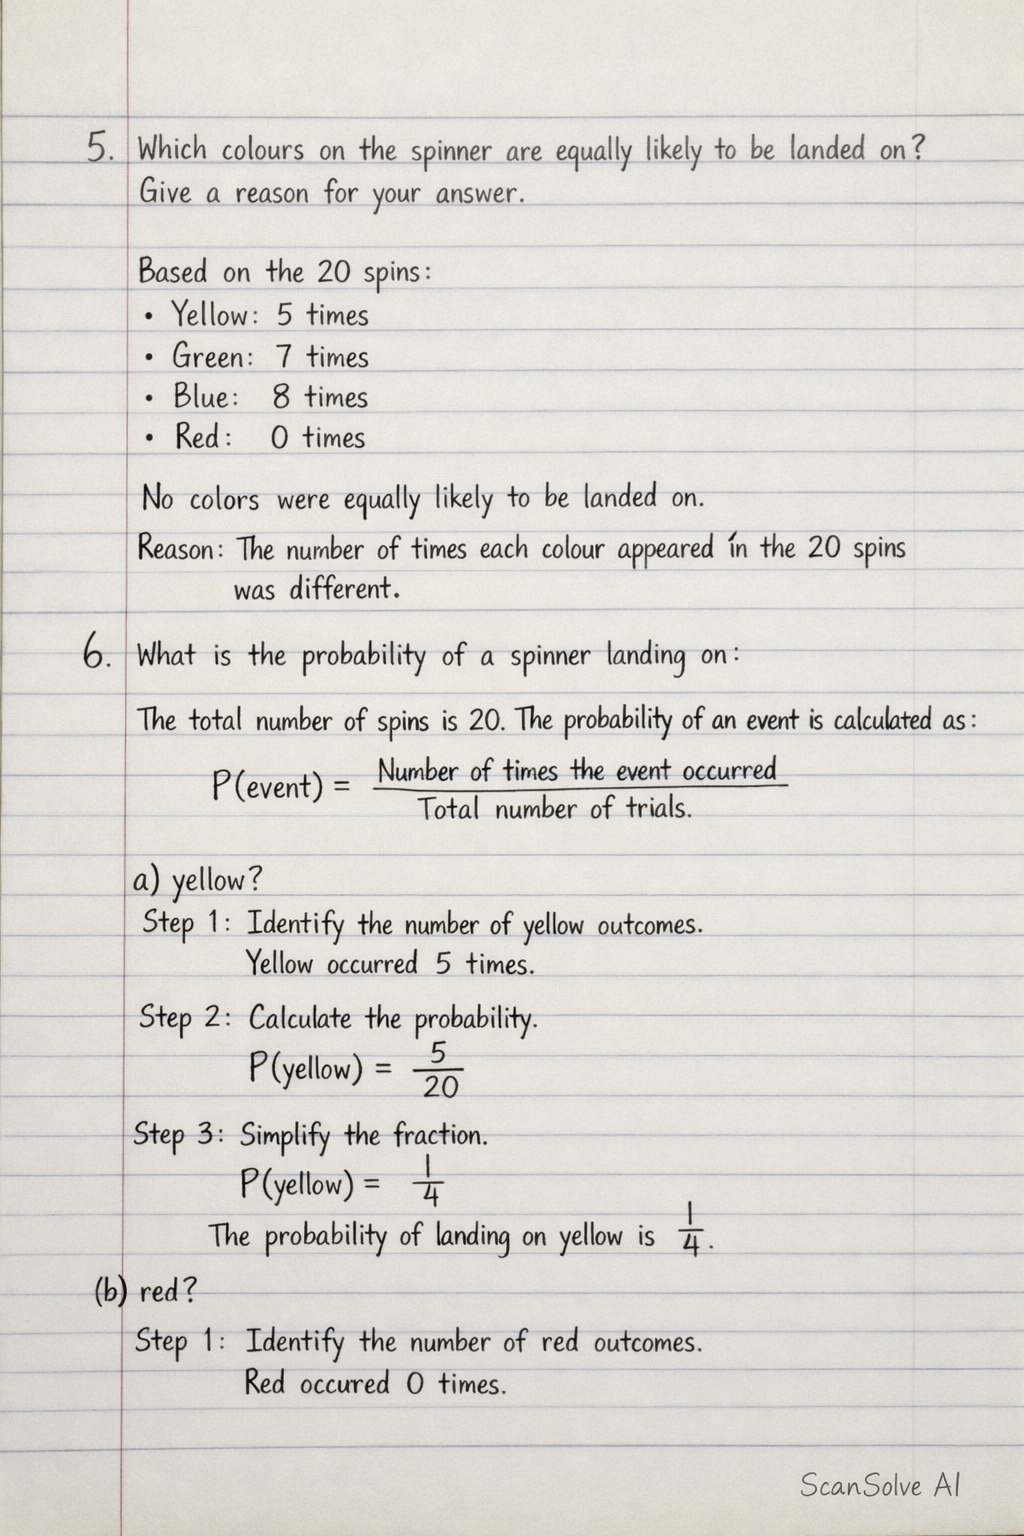 5. Which colours on the spinner are equally likely to be landed on?
Give a reason for your answer.
Based on the 20 spins:
• Yellow: 5 times
• Green: 7 times
• Blue: 8 times
• Red: 0 times
No colors were equally likely to be landed on.
Reason: The number of times each colour appeared in the 20 spins
was different.
6. What is the probability of a spinner landing on:
The total number of spins is 20. The probability of an event is calculated as:
P(event) = Number of times the event occurred
Total number of trials.
a) yellow?
Step 1: Identify the number of yellow outcomes.
Yellow occurred 5 times.
Step 2: Calculate the probability.
P(yellow) = 5/20
Step 3: Simplify the fraction.
P(yellow) = 1/4
The probability of landing on yellow is 1/4.
(b) red?
Step 1: Identify the number of red outcomes.
Red occured 0 times.
ScanSolve AI